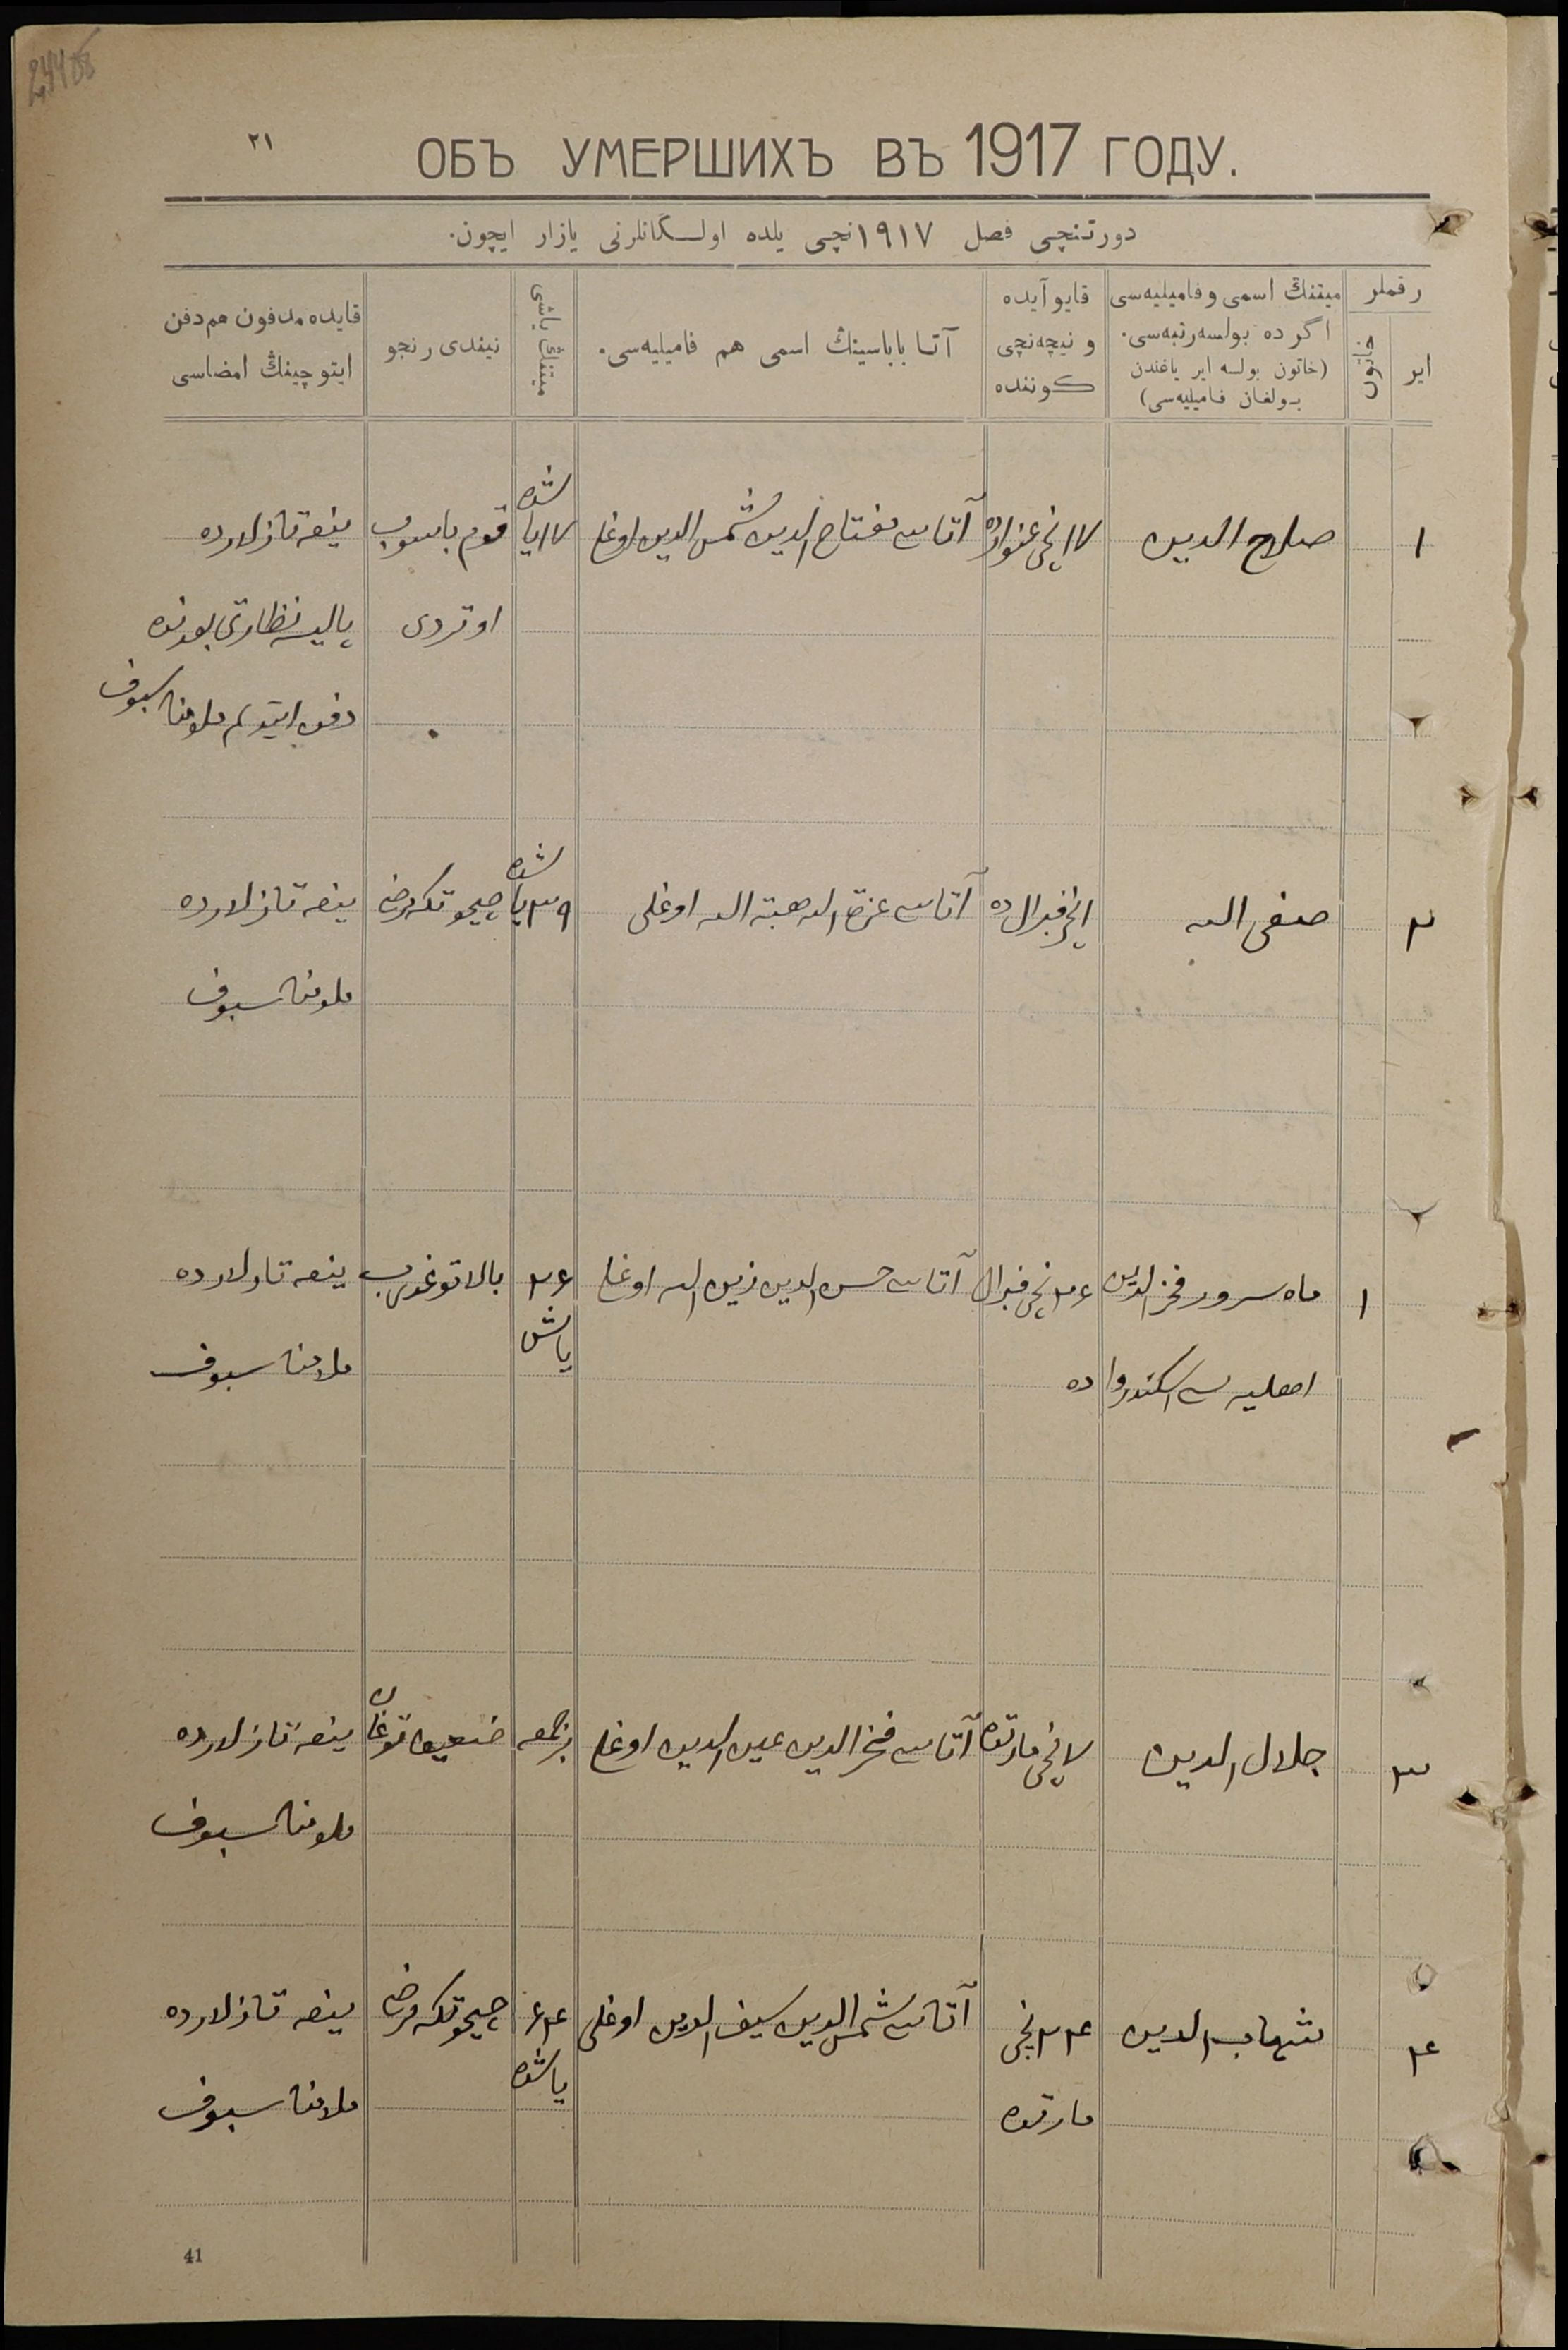 ٢١
ОБЪ УМЕРШИХЪ ВЪ 1917 ГОДУ.
دورتنچی فصل ١٩١٧ نچی یلده اولـگانلرنی یازار ایچون.
رقملر
ایر
خاتون
میتنڭ اسمی و فامیلیه‌سی
اگر ده بولسه رتبه‌سی.
(خاتون بولسه ایر یاغندن
بولغان فامیلیه‌سی)
قایو آیده
و نیچه‌نچی
کوننده
آتا باباسینڭ اسمی هم فامیلیه‌سی.
میتنڭ یاشی
نیندی رنجو
قایده مدفون هم دفن
ایتوچینڭ امضاسی
١ صلاح الدین ١٧ نچی غنوارده آتاسی مفتاح الدین شمس الدین اوغلی ١٧ یاشده قوم باسوب ینعه تازلارده
اوتردی
دفن ایتدم ملا مناسبوف
٢ صفی الله ١ نچی فبرال ده آتاسی عزة الله هبة الله اوغلی ٣٩ یاشده چیحوتکه مرض ینعه تازلارده
ملا مناسبوف
١ ماه سرور فخر الدین ٢٦ نچی فبرال آتاسی حسن الدین زین الله اوغلی ٢٦ بالا توغدرب ینعه تازلارده
یاش
اسکندروا ده ملا مناسبوف
٣ جلال الدین ٧ نچی مارتده آتاسی فخر الدین عین الدین اوغلی ضعیف توغان ینعه تازلارده
ملا مناسبوف
٤ شهاب الدین ٢٤ نچی آتاسی شمس الدین سیف الدین اوغلی ٦٤ چیحوتکه مرض ینعه تازلارده
مارتده یاشده ملا مناسبوف
41